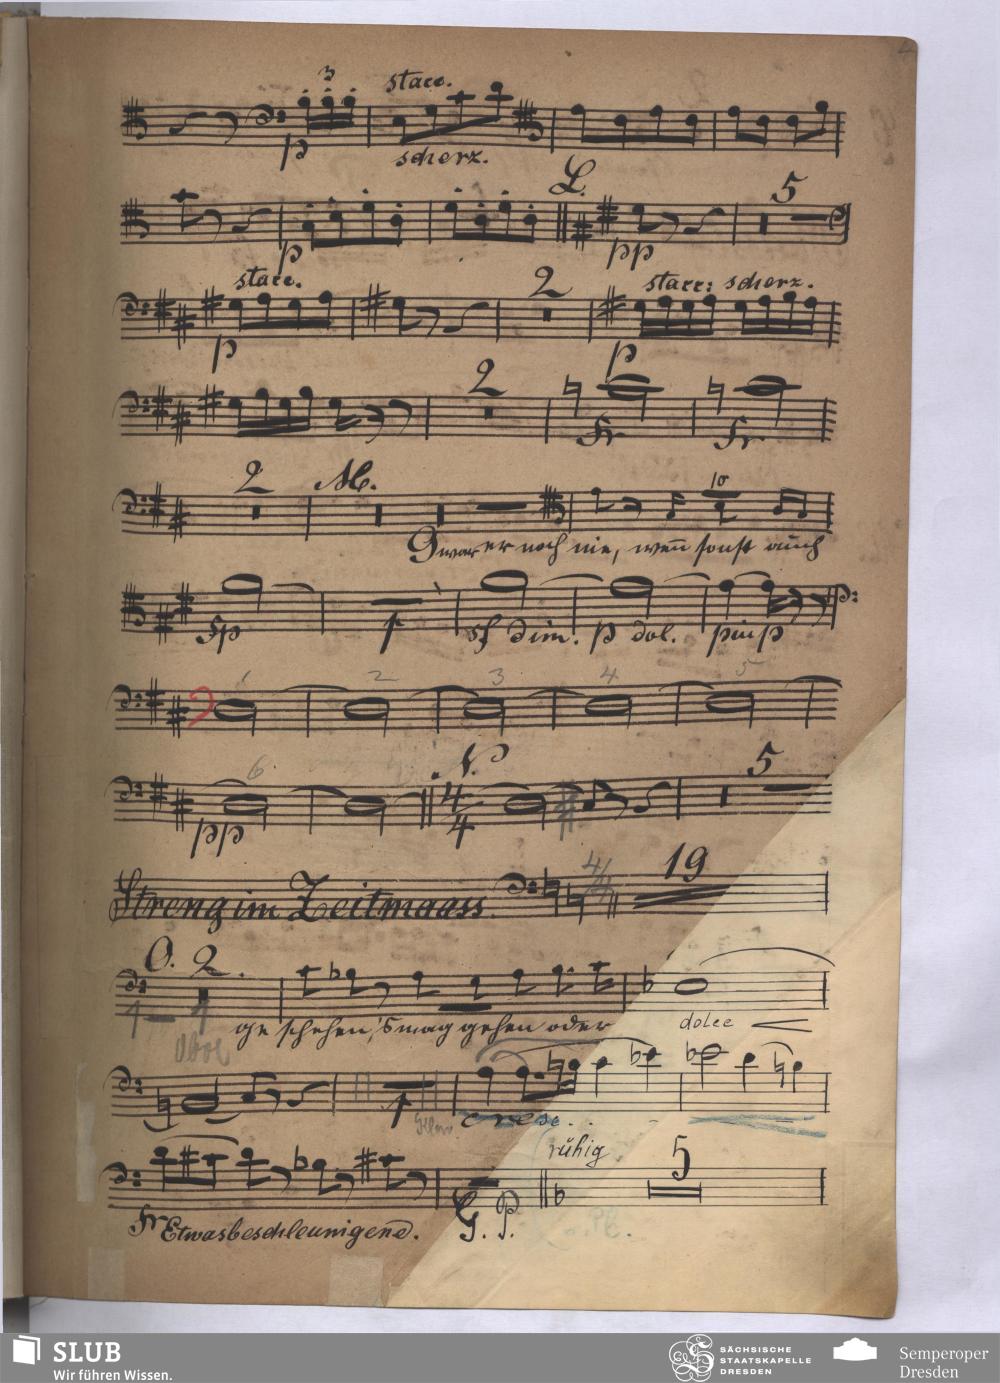 3 stacc.
p scherz.
L. 5
p pp
stacc. 2 stacc: scherz.
p p
2
fr fr
2 M. 10
war er noch nie, weñ sonst auch
fp 1 sf dim. p dol.
1 2 3 4 5
6 N. 5
pp 4/4
Streng im Zeitmaass. 4/4 19
O. 2.
geschehen, 's mag gehen oder dolce
Oboe
1 cresc..
ruhig 5
Etwas beschleunigend. G. P.
SLUB
Wir führen Wissen.
SÄCHSISCHE
STAATSKAPELLE
DRESDEN
Semperoper
Dresden